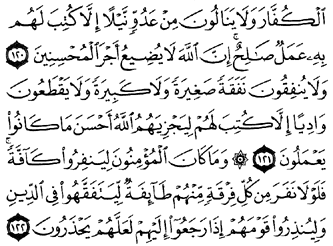 ٱلْكُفَّارَ وَلَا يَنَالُونَ مِنْ عَدُوٍّ نَّيْلًا إِلَّا كُتِبَ لَهُم
بِهِۦ عَمَلٌ صَٰلِحٌ ۚ إِنَّ ٱللَّهَ لَا يُضِيعُ أَجْرَ ٱلْمُحْسِنِينَ ١٢٠
وَلَا يُنفِقُونَ نَفَقَةً صَغِيرَةً وَلَا كَبِيرَةً وَلَا يَقْطَعُونَ
وَادِيًا إِلَّا كُتِبَ لَهُمْ لِيَجْزِيَهُمُ ٱللَّهُ أَحْسَنَ مَا كَانُوا۟
يَعْمَلُونَ ١٢١ ۞ وَمَا كَانَ ٱلْمُؤْمِنُونَ لِيَنفِرُوا۟ كَآفَّةً ۚ
فَلَوْلَا نَفَرَ مِن كُلِّ فِرْقَةٍ مِّنْهُمْ طَآئِفَةٌ لِّيَتَفَقَّهُوا۟ فِى ٱلدِّينِ
وَلِيُنذِرُوا۟ قَوْمَهُمْ إِذَا رَجَعُوٓا۟ إِلَيْهِمْ لَعَلَّهُمْ يَحْذَرُونَ ١٢٢